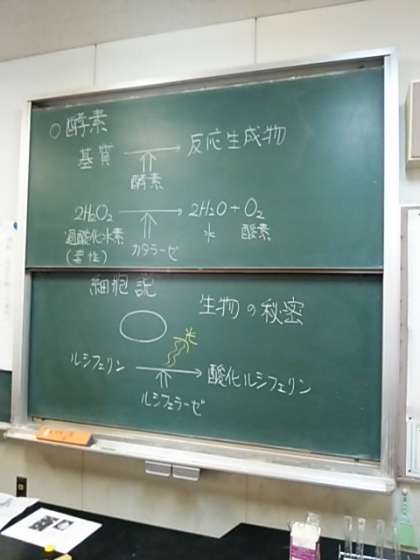 ○酵素
基質 → 反応生成物
酵素
2H2O2 → 2H2O + O2
過酸化水素 カタラーゼ 水 酸素
(毒性)
細胞説
生物の秘密
ルシフェリン → 酸化ルシフェリン
ルシフェラーゼ